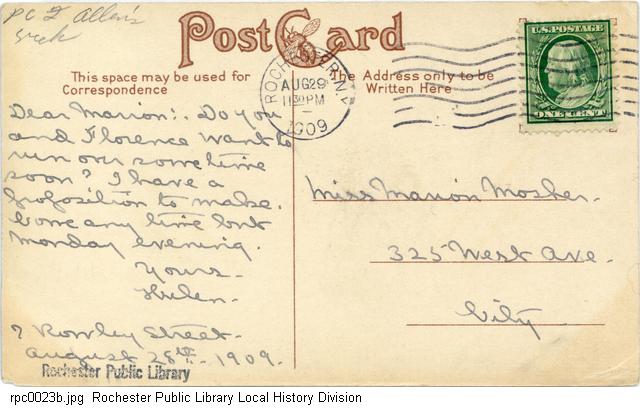 PC 2 Allen's
Creek
Post Card
This space may be used for
Correspondence
The Address only to be
Written Here
ROCHESTER, N.Y.
AUG 29
11 30 PM
1909
U.S. POSTAGE
ONE CENT
Dear Marion:. Do you
and Florence want to
run over some time
soon? I have a
proposition to make.
Come any time but
Monday evening.
Yours-
Helen-
7 Rowley Street-
August 28th-1909.
Miss Marion Mosher.
325 West Ave.
City
Rochester Public Library
rpc0023b.jpg Rochester Public Library Local History Division